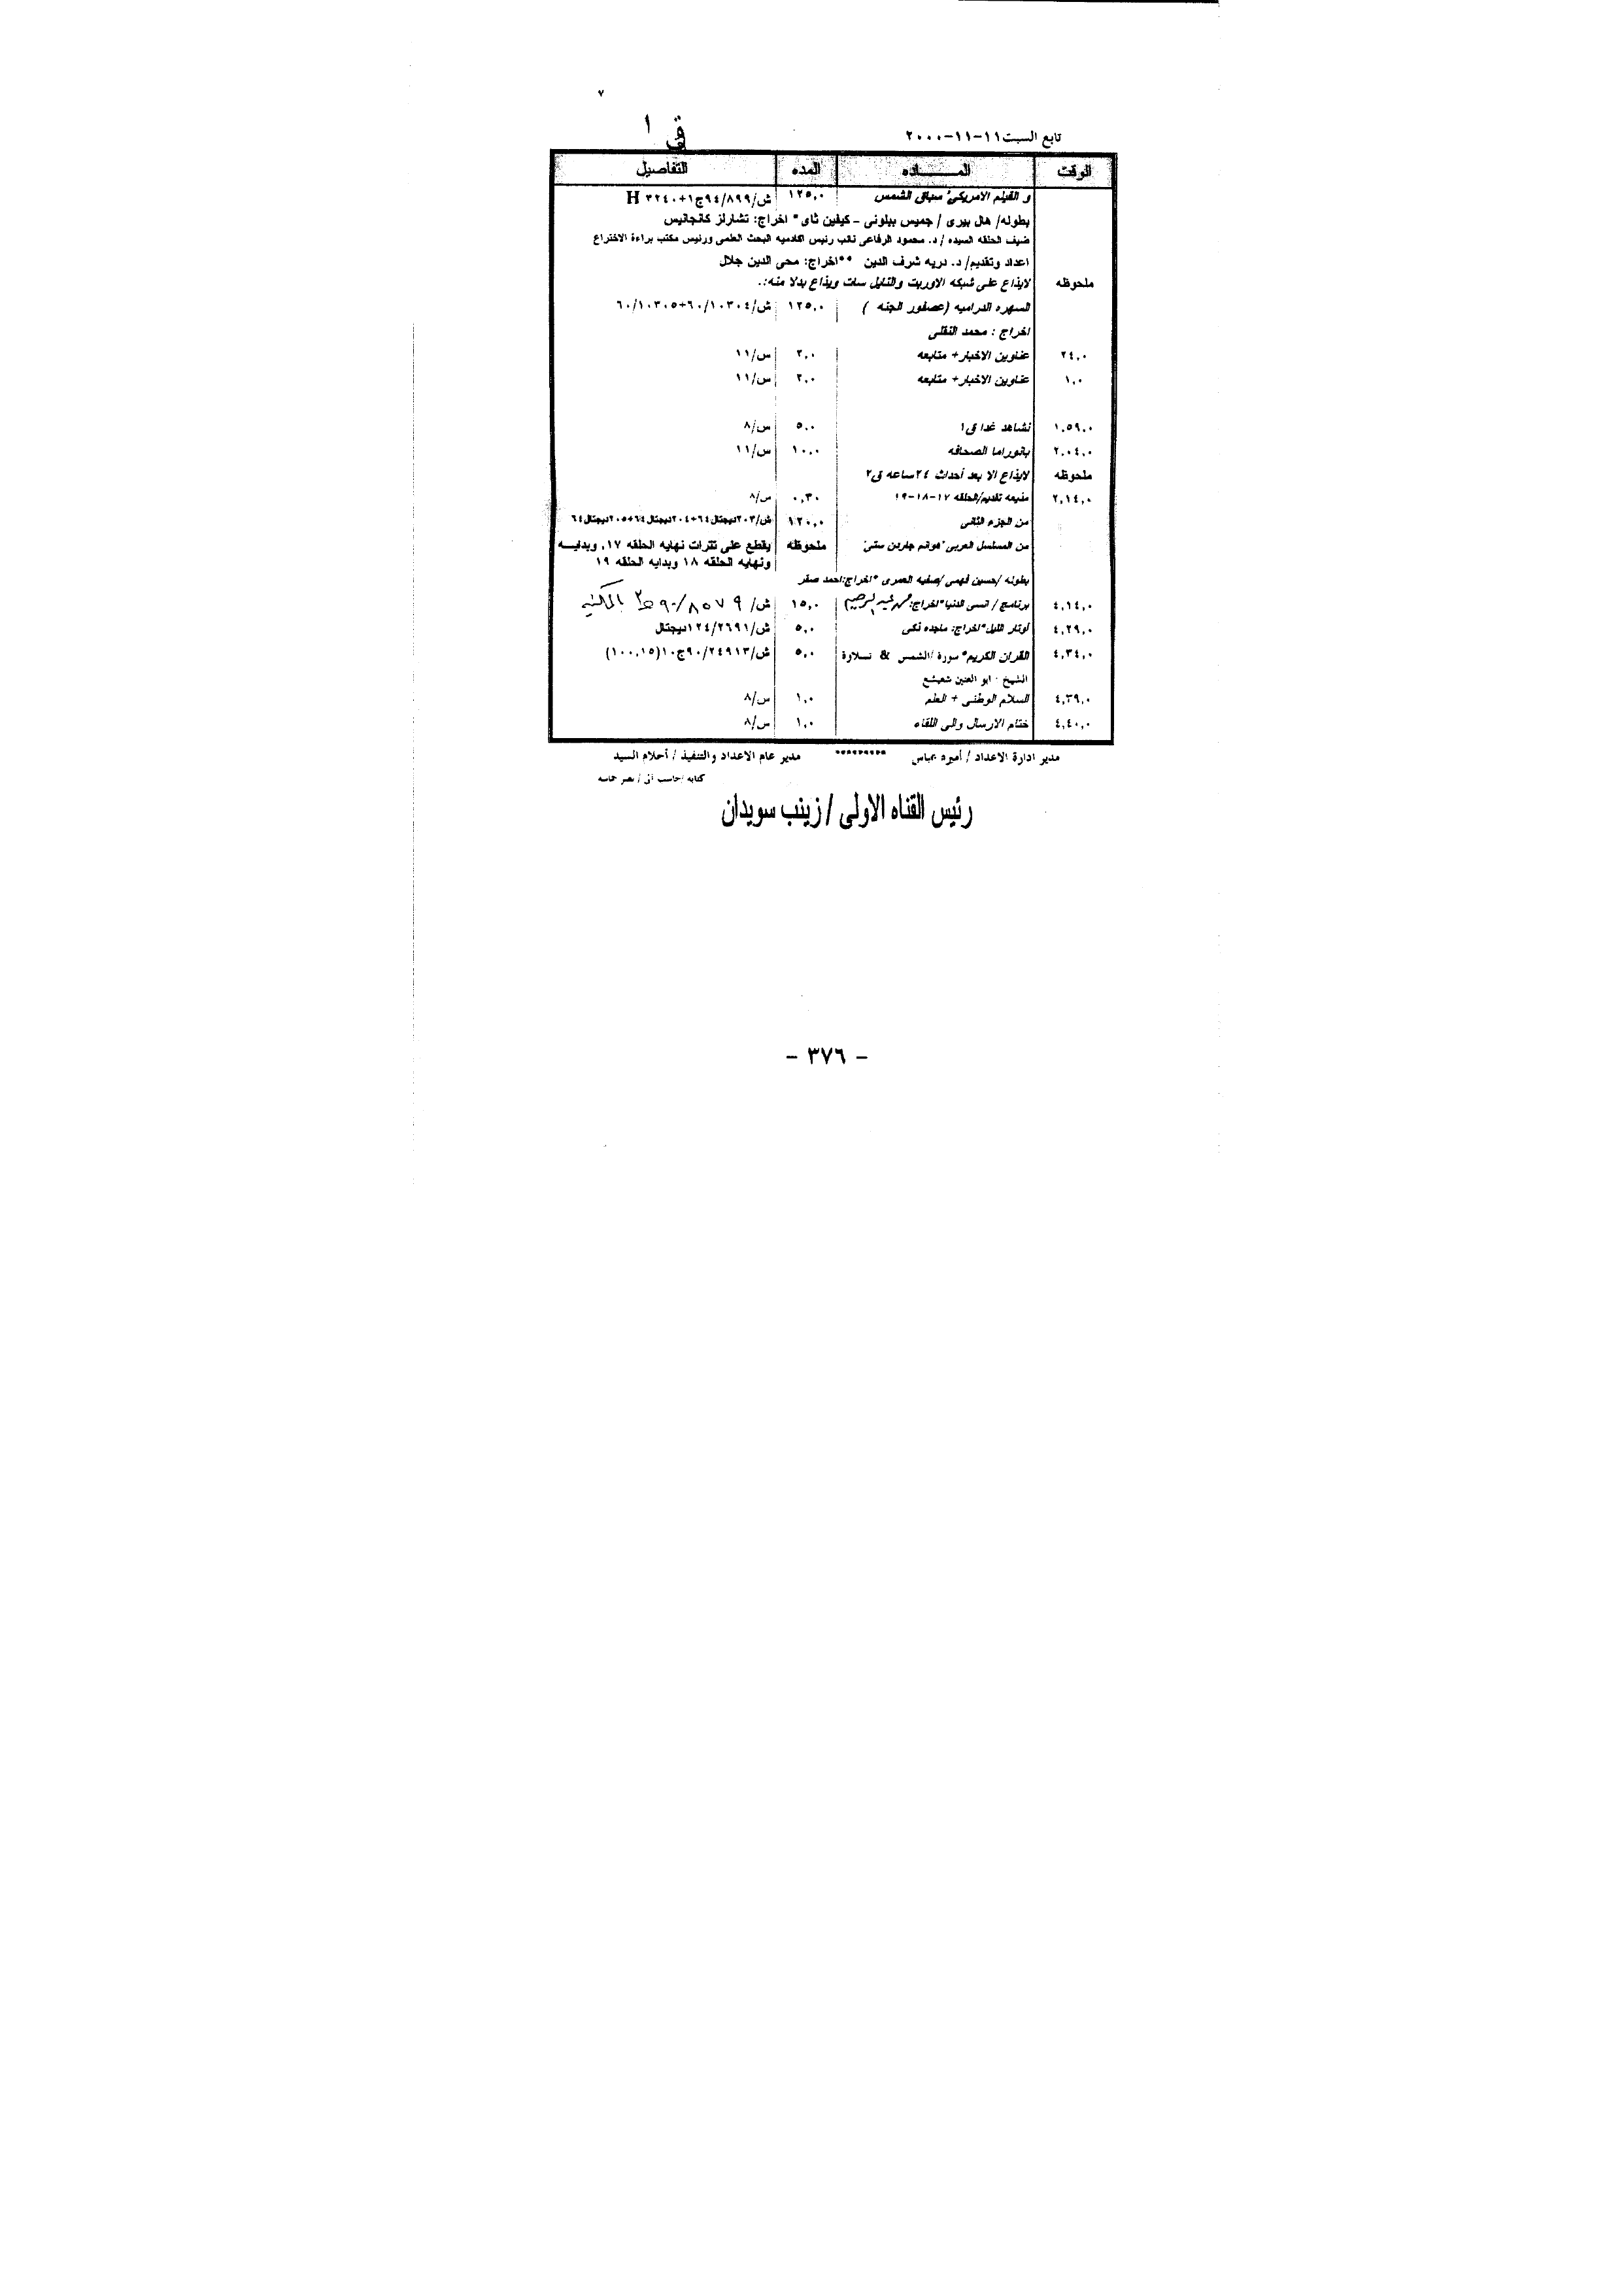 ٧
ق ١
تابع السبت ١١-١١-٢٠٠٠
الوقت المــــاده المده التفاصيل
و الفيلم الامريكى" سباق الشمس ١٢٥,٠ ش/٩٤/٨٩٩ج١+٣٢٤٠ H
بطوله/ هال بيرى / جميس بيلونى - كيفين ثاى* اخراج: تشارلز كانجانيس
ضيف الحلقه السيده / د. محمود الرفاعى نائب رئيس اكادميه البحث العلمى ورئيس مكتب براءة الاختراع
اعداد وتقديم/ د. دريه شرف الدين **اخراج: محى الدين جلال
ملحوظه لايذاع على شبكه الاوربت والنايل سات ويذاع بدلا منه:.
السهره الدراميه (عصفور الجنه ) ١٢٥,٠ ش/٦٠/١٠٣٠٤+٦٠/١٠٣٠٥
اخراج : محمد النقلى
٢٤,٠ عناوين الاخبار+ متابعه ٢,٠ س/١١
١,٠ عناوين الاخبار+ متابعه ٢,٠ س/١١
١,٥٩,٠ نشاهد غدا ق١ ٥,٠ س/٨
٢,٠٤,٠ بانوراما الصحافه ١٠,٠ س/١١
ملحوظه لايذاع الا بعد أحداث ٢٤ساعه ق٢
٢,١٤,٠ مذيعه تقديم/الحلقه ١٧-١٨-١٩ ٠,٣٠ س/٨
من الجزء الثانى ١٢٠,٠ ش/٢٠٣ديجتال٦٤+٢٠٤ديجتال٦٤+٢٠٥ديجتال٦٤
من المسلسل العربى"هوانم جاردن ستى" ملحوظه يقطع على تترات نهايه الحلقه ١٧، وبدايـــه
ونهايه الحلقه ١٨ وبدايه الحلقه ١٩
بطوله /حسين فهمى /صفيه العمرى *اخراج:احمد صقر
٤,١٤,٠ برنامج / انسى الدنيا*اخراج: عبد الرحيم ١٥,٠ ش/ ٩٠/٨٥٧٩
٤,٢٩,٠ أوتار الليل*اخراج: ماجده زكى ٥,٠ ش/١٢٤/٢٦٩١ديجتال
٤,٣٤,٠ القران الكريم* سورة /الشمس & تـلاوة ٥,٠ ش/٩٠/٢٤٩١٣ج١٠(١٠٠,١٥)
الشيخ - ابو العنين شعيشع
٤,٣٩,٠ السلام الوطنى + العلم ١,٠ س/٨
٤,٤٠,٠ ختام الارسال والى اللقاء ١,٠ س/٨
مدير ادارة الاعداد / أميره عباس ********* مدير عام الاعداد والتنفيذ / أحلام السيد
كتابه /حاسب الى /
رئيس القناه الاولى / زينب سويدان
- ٣٧٦ -